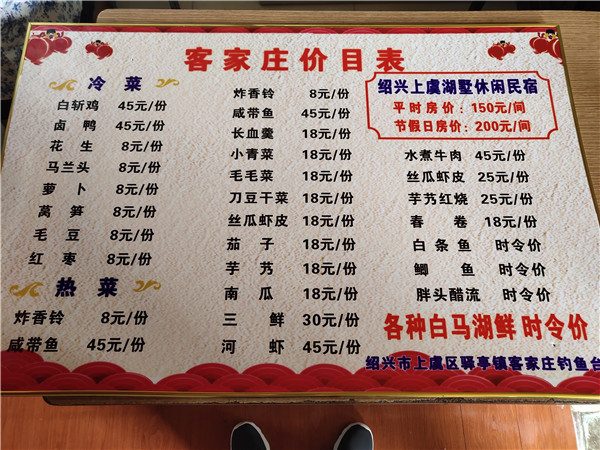 客家庄价目表
冷 菜
白斩鸡 45元/份
卤 鸭 45元/份
花 生 8元/份
马兰头 8元/份
萝 卜 8元/份
莴 笋 8元/份
毛 豆 8元/份
红 枣 8元/份
热 菜
炸香铃 8元/份
咸带鱼 45元/份
炸香铃 8元/份
咸带鱼 45元/份
长血羹 18元/份
小青菜 18元/份
毛毛菜 18元/份
刀豆干菜 18元/份
丝瓜虾皮 18元/份
茄 子 18元/份
芋艿 18元/份
南 瓜 18元/份
三 鲜 30元/份
河 虾 45元/份
绍兴上虞湖墅休闲民宿
平时房价：150元/间
节假日房价：200元/间
水煮牛肉 45元/份
丝瓜虾皮 25元/份
芋艿红烧 25元/份
春 卷 18元/份
白条鱼 时令价
鲫 鱼 时令价
胖头醋流 时令价
各种白马湖鲜 时令价
绍兴市上虞区驿亭镇客家庄钓鱼台